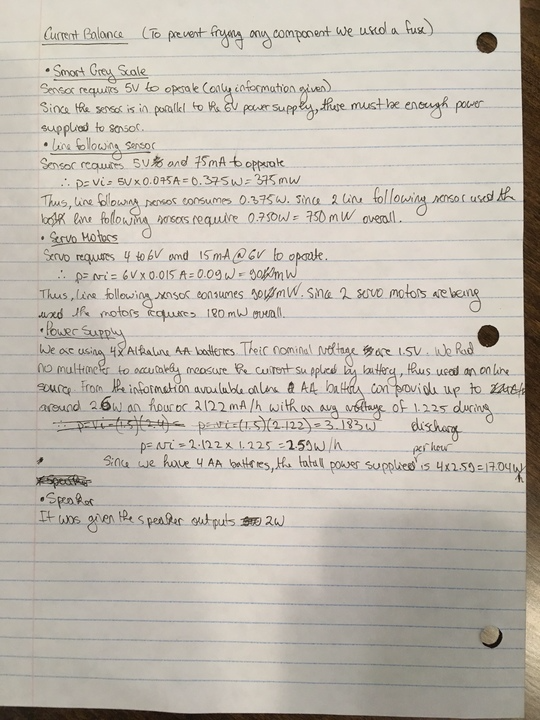 Current Balance (To prevent frying any component we used a fuse)
• Smart Grey Scale
Sensor requires 5V to operate (only information given)
Since the sensor is in parallel to the 6V power supply, there must be enough power
supplied to sensor.
• Line following sensor
Sensor requires 5V and 75mA to opperate
∴ p=vi= 5V×0.075A=0.375W=375mW
Thus, line following sensor consumes 0.375W. Since 2 line following sensor used the
both line following sensors require 0.750W=750mW overall.
• Servo Motors
Servo requires 4 to 6V and 15mA@6V to operate.
∴ p=vi= 6V×0.015A=0.09W=90mW
Thus, line following sensor consumes 90mW. Since 2 servo motors are being
used the motors requires 180mW overall.
• Power Supply
We are using 4x Alkaline AA batteries. Their nominal voltage are 1.5V. We had
no multimeter to accurately measure the current supplied by battery, thus used an online
source. From the information available online a AA battery can provide up to
around 2.6W an hour or 2122mA/h with an avg voltage of 1.225 during
∴ p=vi=(1.5)(2.4)= p=vi=(1.5)(2.122)=3.183W discharge
p=vi=2.122×1.225=2.59W/h per hour
• Since we have 4 AA batteries, the total power supplied is 4×2.59=17.04W/h
• Speaker
• Speaker
It was given the speaker outputs 2W